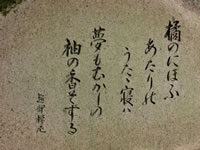 橘のにほふ
あたりの
うたゝ寝は
夢もむかしの
袖の香そする